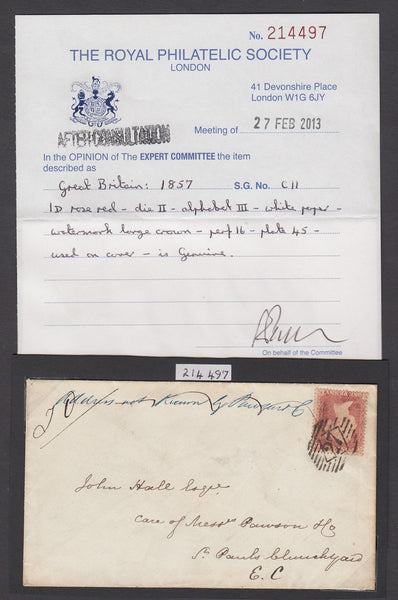 No. 214497
THE ROYAL PHILATELIC SOCIETY
LONDON
41 Devonshire Place
London W1G 6JY
AFTER CONSULTATION
Meeting of 27 FEB 2013
In the OPINION of The EXPERT COMMITTEE the item
described as
Great Britain: 1857 S.G. No. C11
1D rose red - die II - alphabet III - white paper -
watermark large crown - perf 16 - plate 45 -
used on cover - is Genuine.
On behalf of the Committee
214 497
address not known by
John Hall Esqre
Care of Messrs Pawson
St Pauls Churchyard
E. C